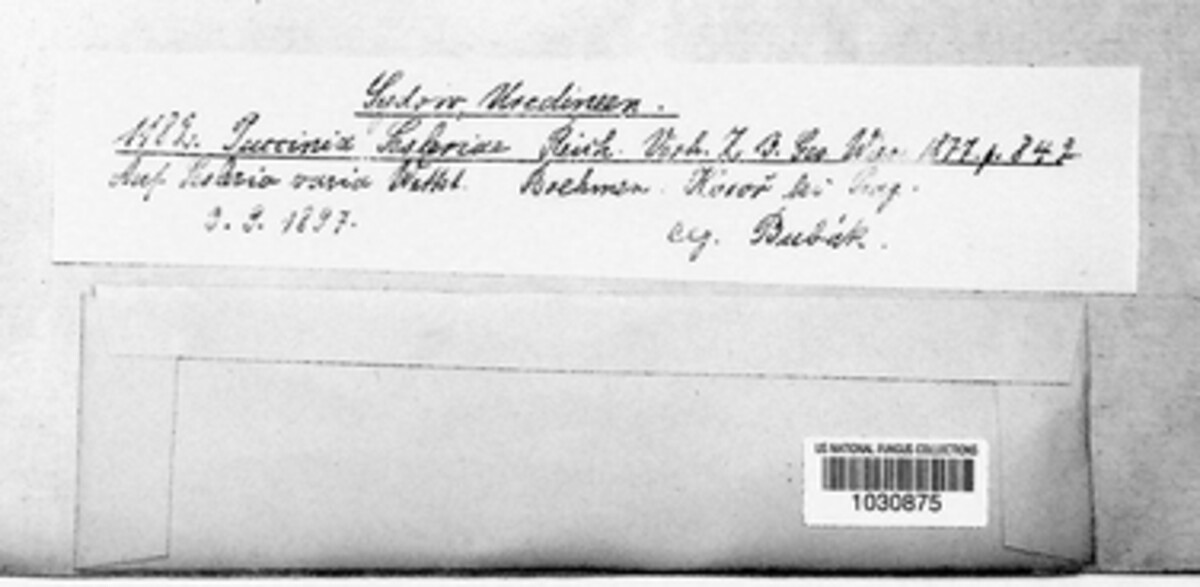 Sydow, Uredineen.
1182. Puccinia Sesleriae Reich. Verh. Z. B. Ges. Wien 1877. p. 842
Auf Sesleria varia Wettst. Boehmen. Kosoř bei Prag.
3. 9. 1897. leg. Bubák.
US NATIONAL FUNGUS COLLECTIONS
1030875